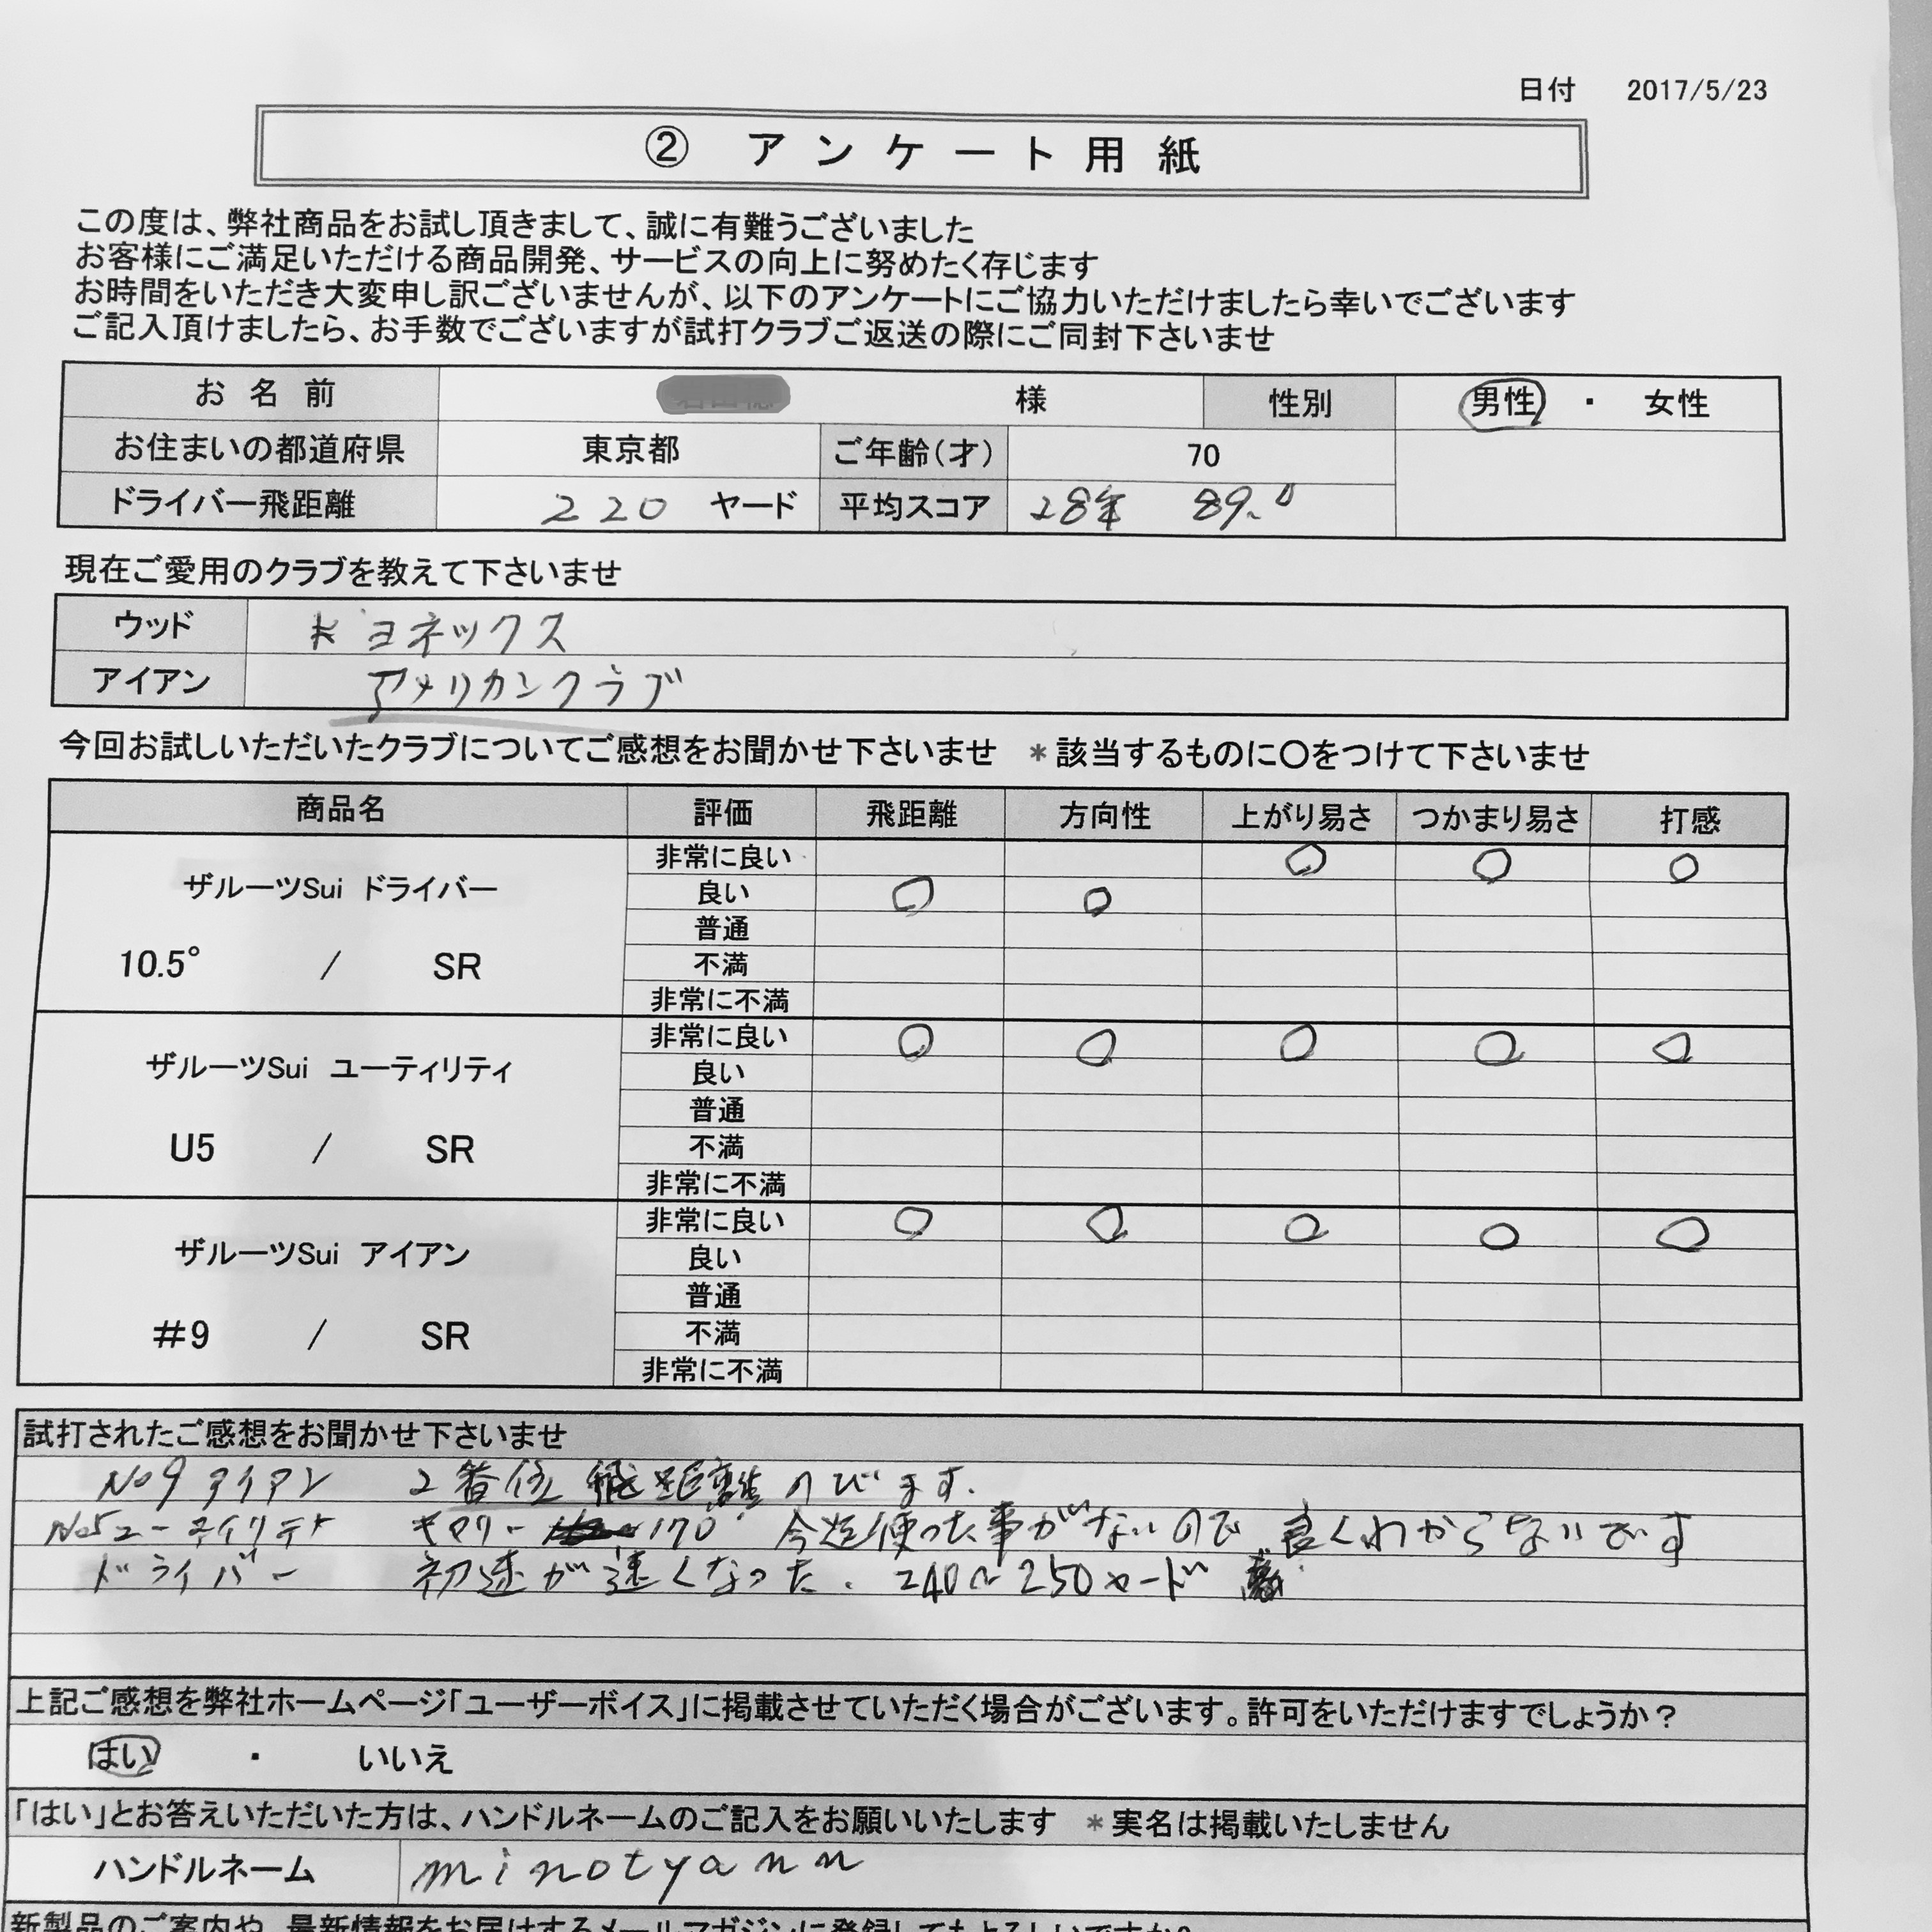 日付 2017/5/23
② アンケート用紙
この度は、弊社商品をお試し頂きまして、誠に有難うございました
お客様にご満足いただける商品開発、サービスの向上に努めたく存じます
お時間をいただき大変申し訳ございませんが、以下のアンケートにご協力いただけましたら幸いでございます
ご記入頂けましたら、お手数でございますが試打クラブご返送の際にご同封下さいませ
お名前 様 性別 男性 ・ 女性
お住まいの都道府県 東京都 ご年齢(才) 70
ドライバー飛距離 220 ヤード 平均スコア 28年 89.0
現在ご愛用のクラブを教えて下さいませ
ウッド ヨネックス
アイアン アメリカンクラブ
今回お試しいただいたクラブについてご感想をお聞かせ下さいませ *該当するものに〇をつけて下さいませ
商品名 評価 飛距離 方向性 上がり易さ つかまり易さ 打感
ザルーツSui ドライバー
10.5° / SR
非常に良い ○ ○ ○
良い ○ ○
普通
不満
非常に不満
ザルーツSui ユーティリティ
U5 / SR
非常に良い ○ ○ ○ ○ ○
良い
普通
不満
非常に不満
ザルーツSui アイアン
#9 / SR
非常に良い ○ ○ ○ ○ ○
良い
普通
不満
非常に不満
試打されたご感想をお聞かせ下さいませ
No9アイアン 2番位飛距離のびます.
No5ユーティリティ キャリー 170 今迄使った事がないので良くわからないです
ドライバー 初速が速くなった. 240~250ヤード
上記ご感想を弊社ホームページ「ユーザーボイス」に掲載させていただく場合がございます。許可をいただけますでしょうか？
はい ・ いいえ
「はい」とお答えいただいた方は、ハンドルネームのご記入をお願いいたします *実名は掲載いたしません
ハンドルネーム minotyann
新製品のご案内や、最新情報をお届けするメールマガジンに登録してもよろしいですか?